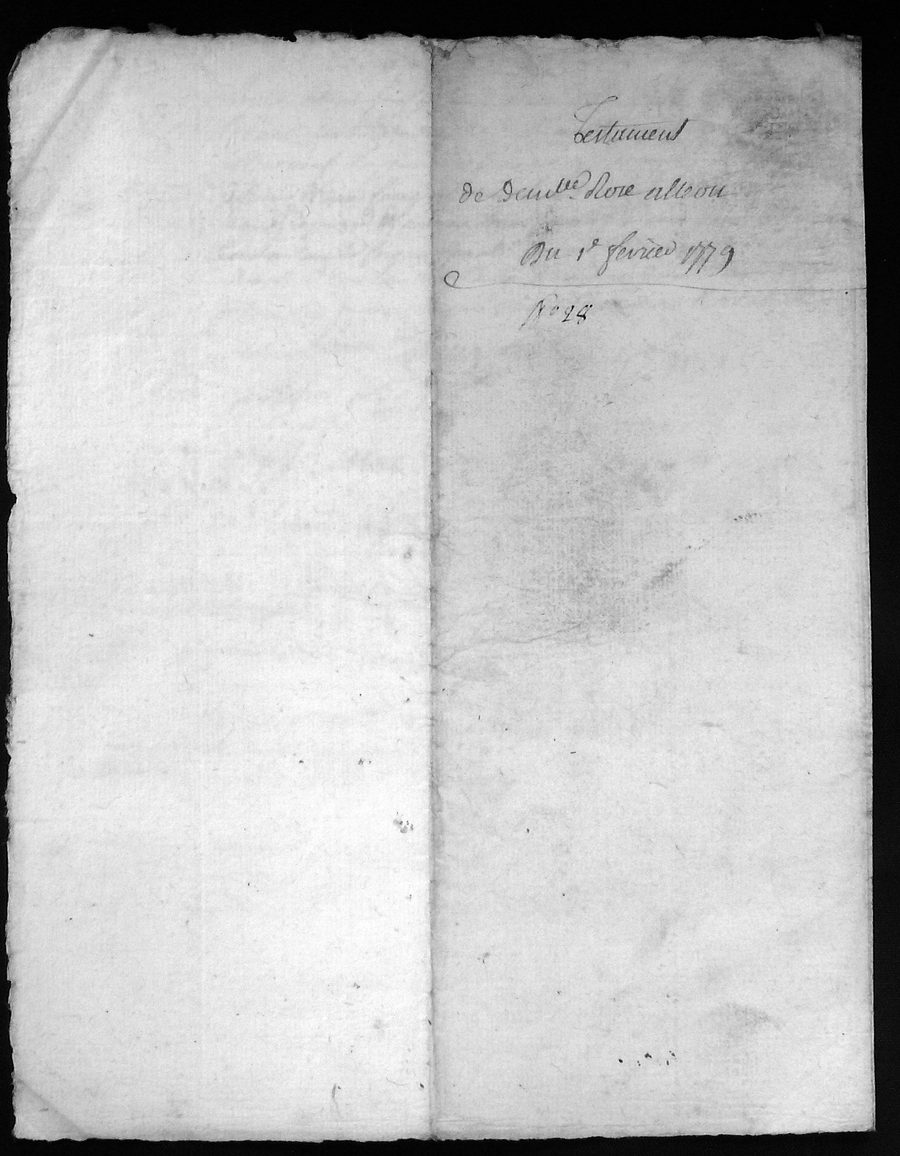 Testament
de demlle Rose alleon
Du 1r fevrier 1779
No 28